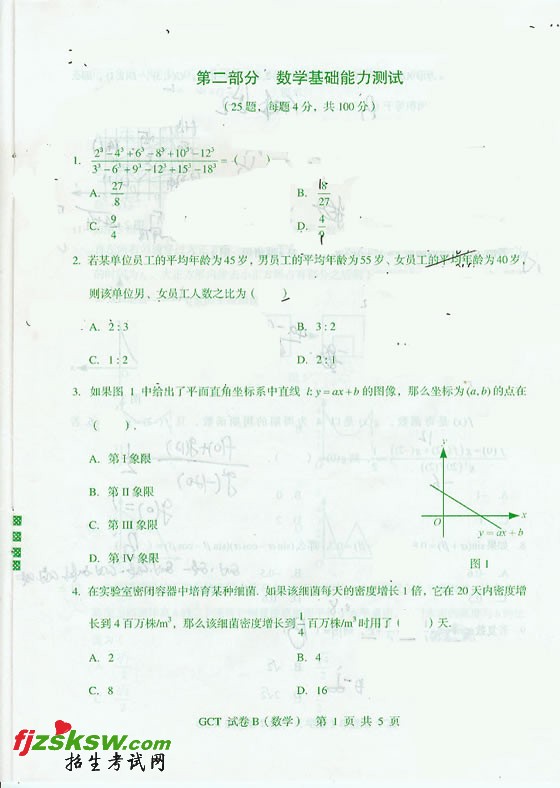 第二部分 数学基础能力测试
(25题,每题4分,共100分)
1. (2³-4³+6³-8³+10³-12³)/(3³-6³+9³-12³+15³-18³)=( )
A. 27/8
B. 18/27
C. 9/4
D. 4/9
2. 若某单位员工的平均年龄为45岁,男员工的平均年龄为55岁、女员工的平均年龄为40岁,
则该单位男、女员工人数之比为( )
A. 2:3
B. 3:2
C. 1:2
D. 2:1
3. 如果图 1 中给出了平面直角坐标系中直线 l: y=ax+b 的图像,那么坐标为(a,b)的点在
( ).
A. 第 I 象限
B. 第 II 象限
C. 第 III 象限
D. 第 IV 象限
y
O
x
y=ax+b
图1
4. 在实验室密闭容器中培育某种细菌. 如果该细菌每天的密度增长1倍,它在20天内密度增
长到4百万株/m³,那么该细菌密度增长到1/4百万株/m³时用了( )天.
A. 2
B. 4
C. 8
D. 16
GCT 试卷B(数学) 第 1 页 共 5 页
fjzsksw.com
招生考试网